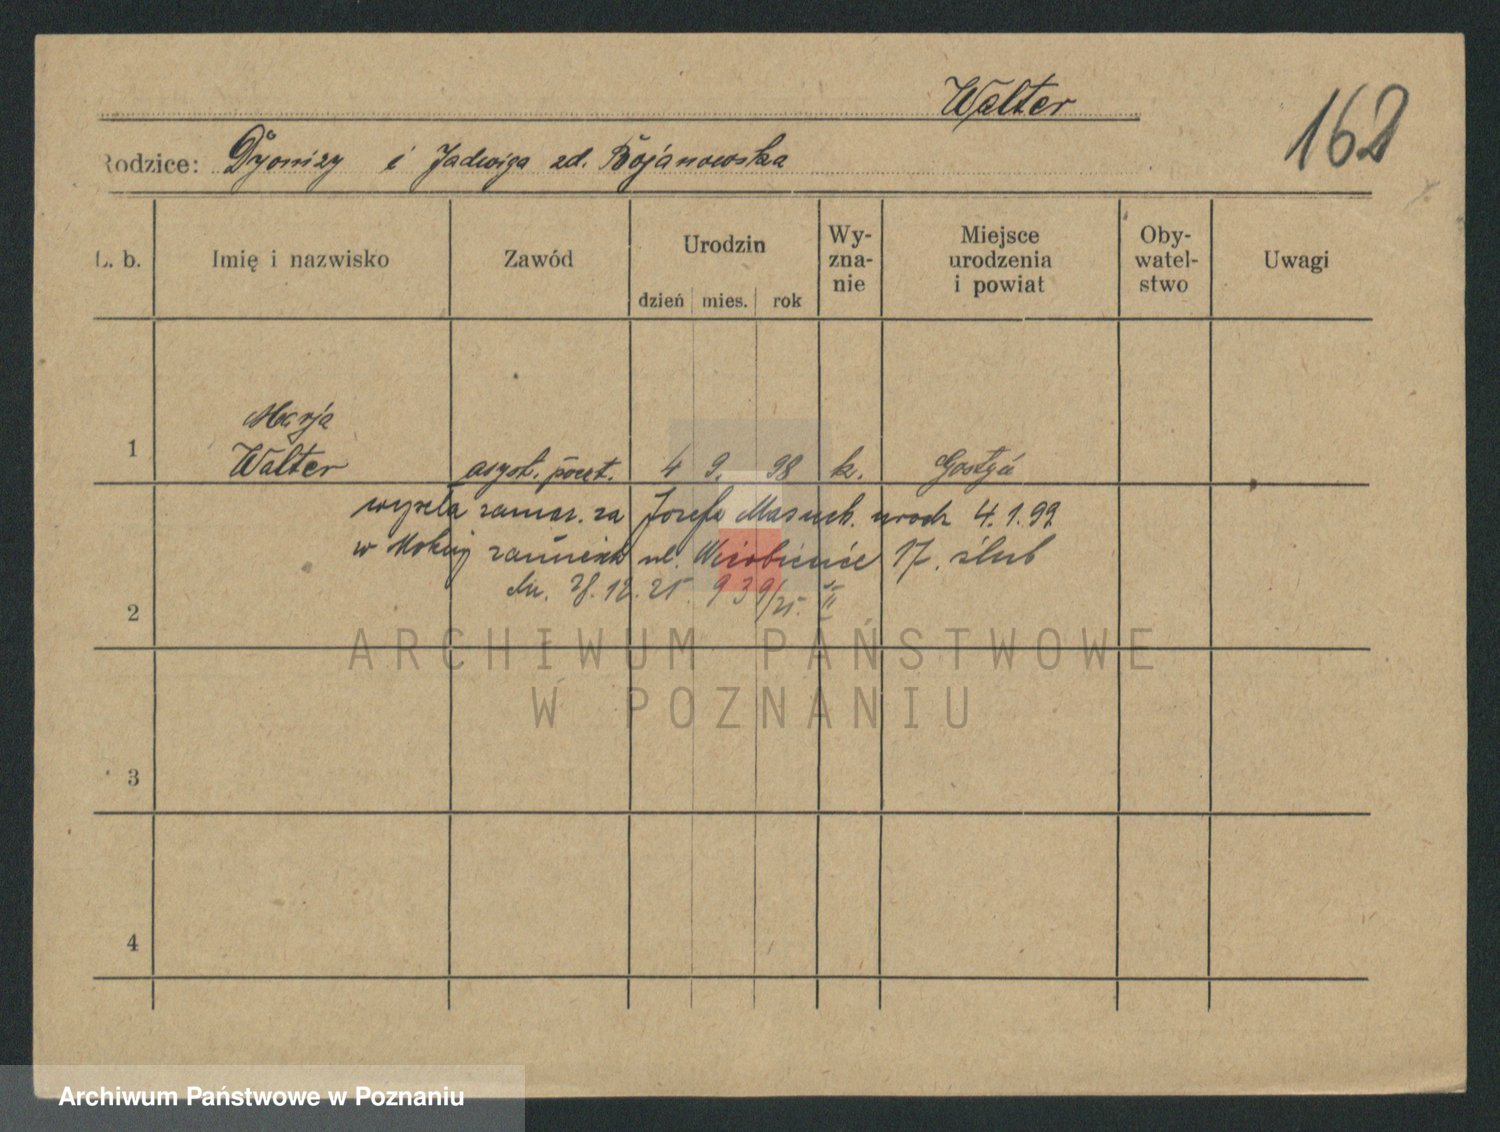 Walter
162
Rodzice: Dyonizy i Jadwiga zd. Bojanowska
L. b. Imię i nazwisko Zawód Urodzin dzień mies. rok Wy-zna-nie Miejsce urodzenia i powiat Oby-watel-stwo Uwagi
Marja
1 Walter asyst. poczt. 4 9. 98 k. Gostyń
wyszła zamąż. za Józefa urodz. 4.1.99
w zamieszk ul. 17. ślub
2 dn. 28.12.25. 939/25. II
3
4
ARCHIWUM PAŃSTWOWE
W POZNANIU
Archiwum Państwowe w Poznaniu